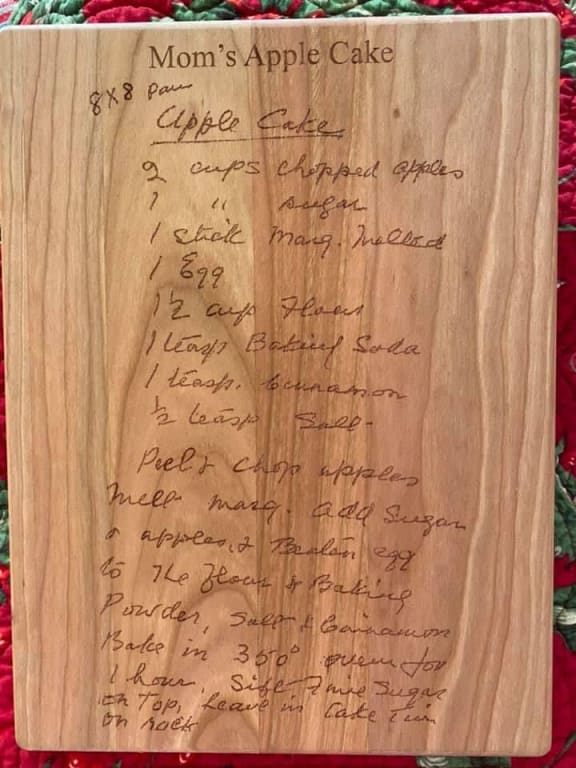 Mom's Apple Cake
8X8 pan
Apple Cake
2 cups chopped apples
1 " sugar
1 stick Marg. Melted
1 Egg
1 1/2 cup Flour
1 teasp Baking Soda
1 teasp. Cinnamon
1/2 teasp Salt
Peel & chop apples
Melt marg. add Sugar
& apples, & Beaten egg
to the Flour & Baking
Powder, Salt & Cinnamon
Bake in 350° oven for
1 hour. Sift Fine Sugar
on Top, Leave in Cake Tin
on rack